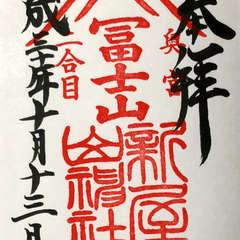 奉拝
奥宮
新屋
冨士山
山神社
二合目
成三十年十月十三日